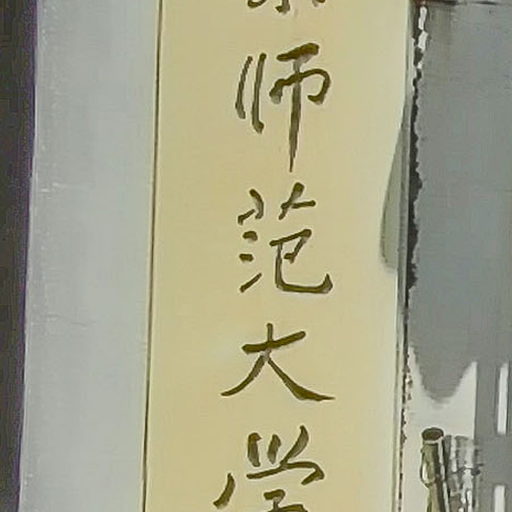 师范大学